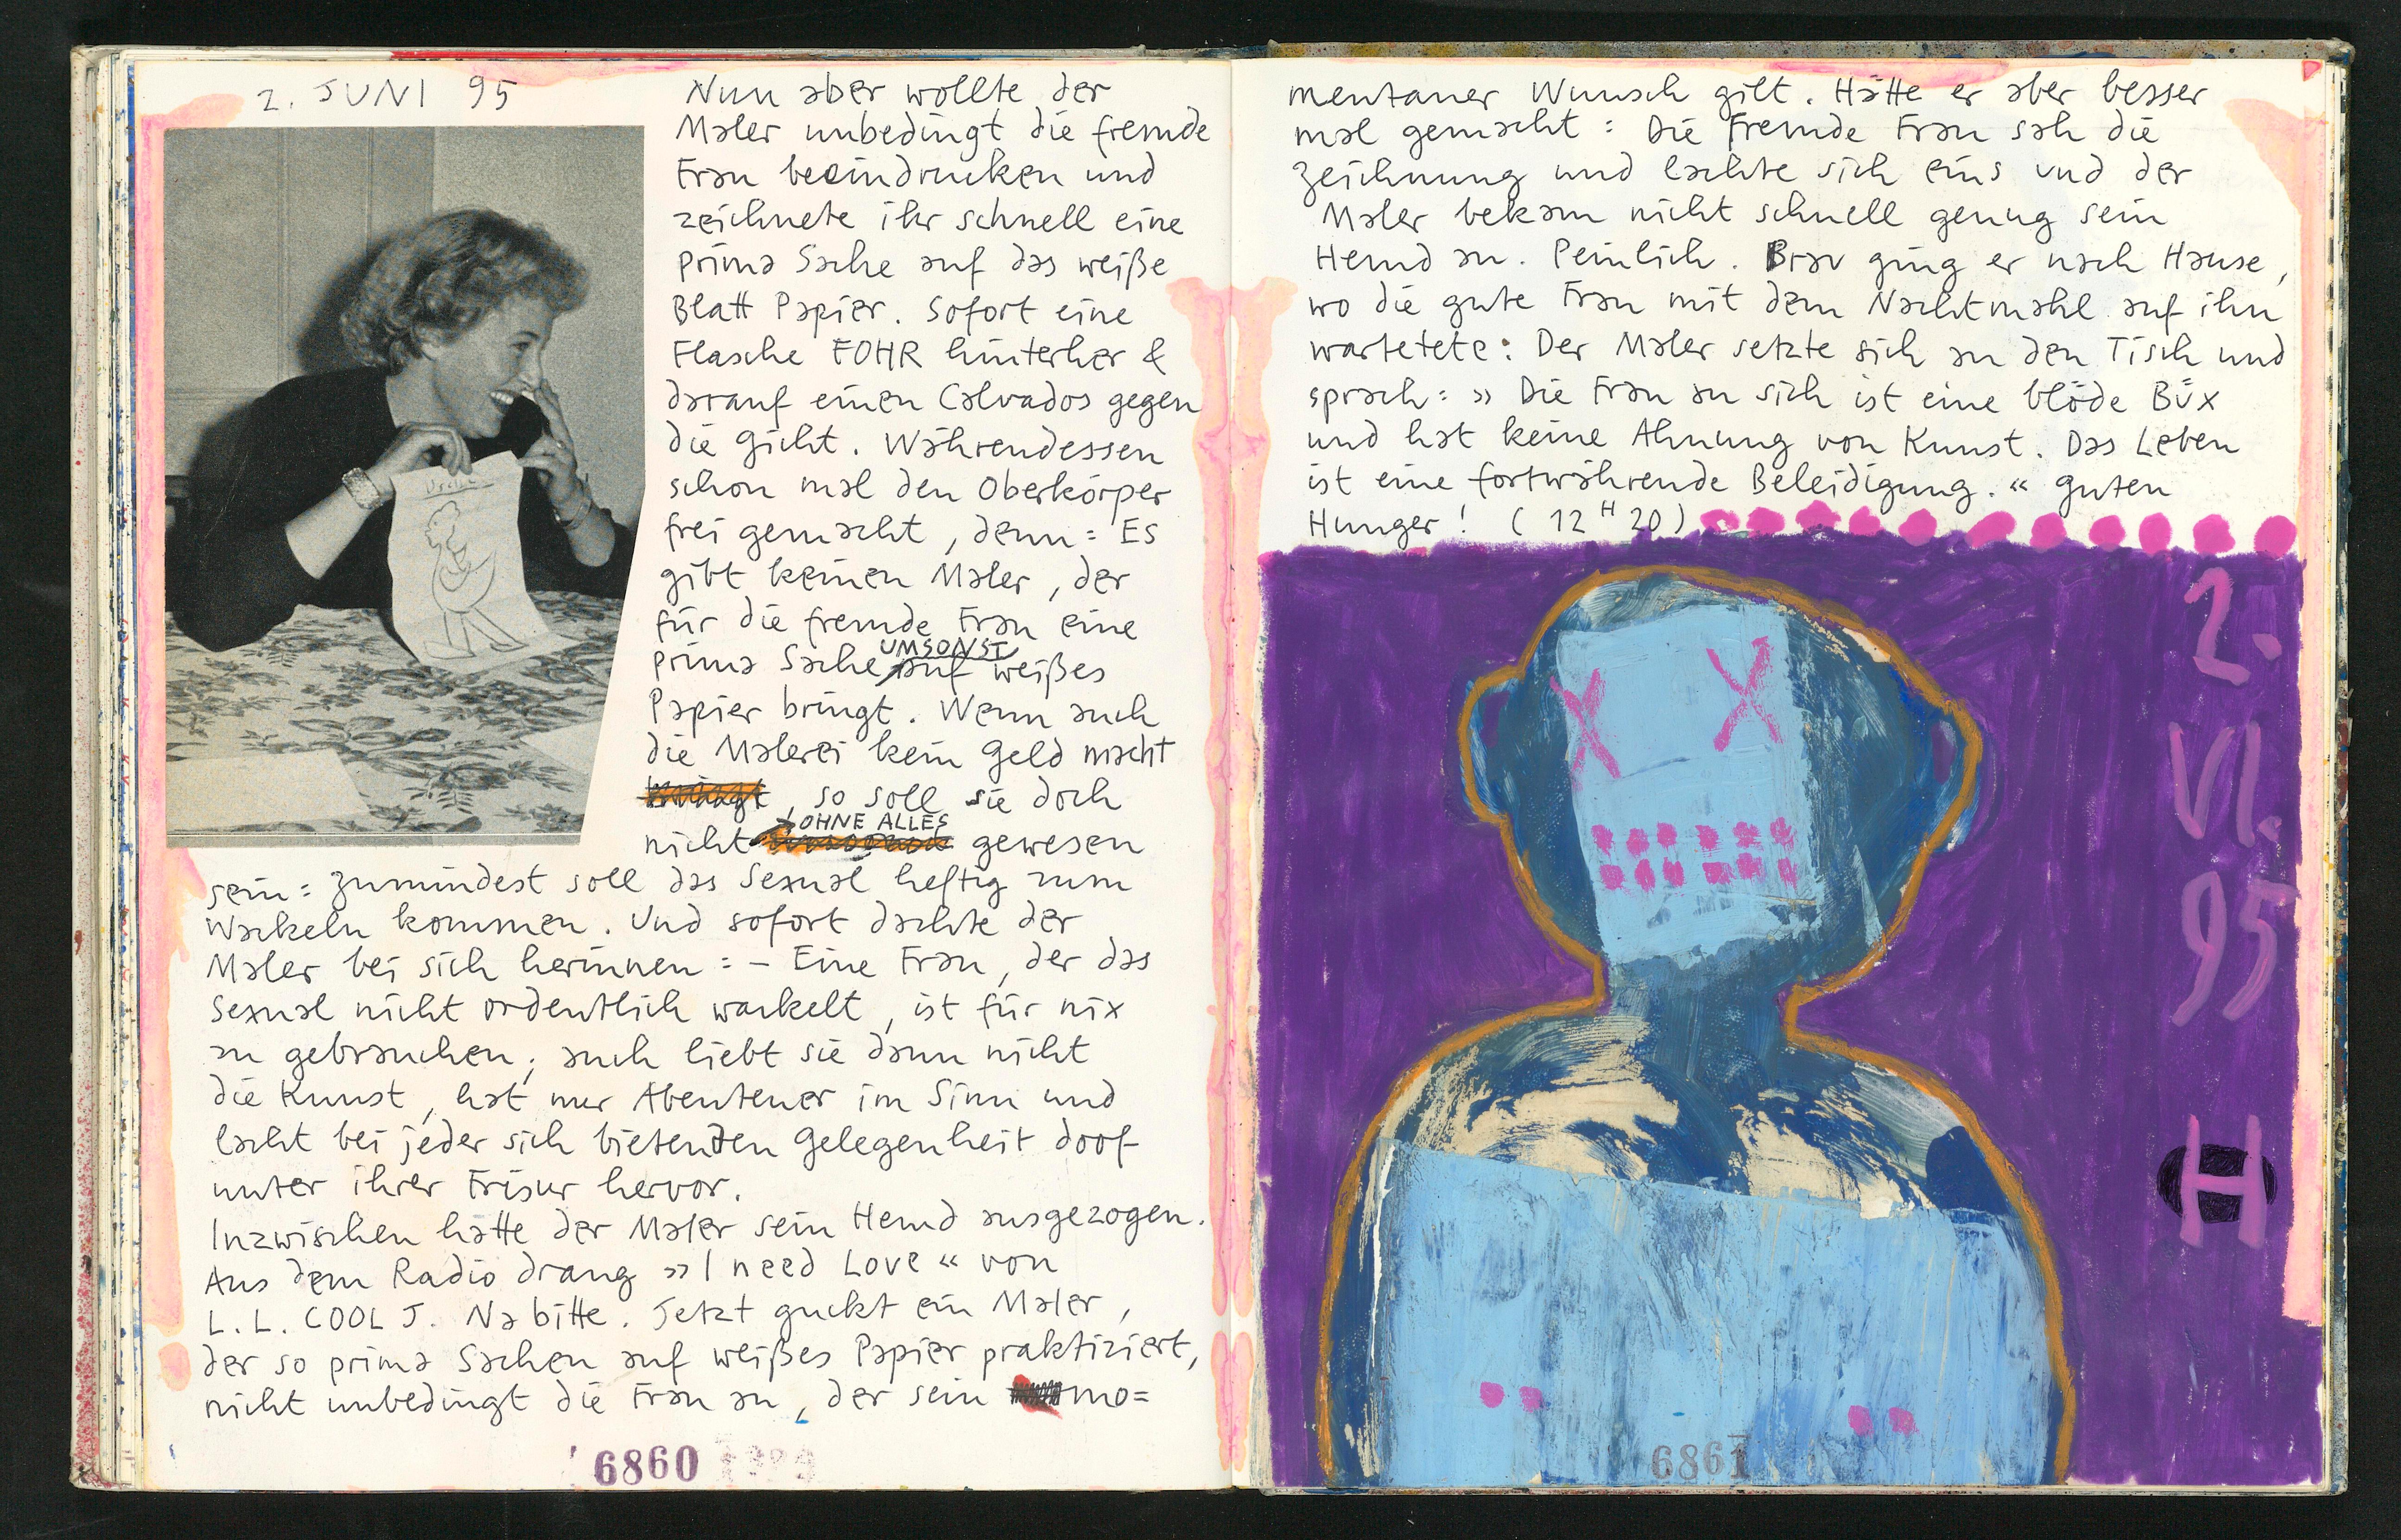 2. JUNI 95
Nun aber wollte der
Maler unbedingt die fremde
Frau beeindrucken und
zeichnete ihr schnell eine
prima Sache auf das weiße
Blatt Papier. Sofort eine
Flasche FOHR hinterher &
darauf einen Calvados gegen
die Gicht. Währendessen
schon mal den Oberkörper
frei gemacht, denn: Es
gibt keinen Maler, der
für die fremde Frau eine
UMSONST
prima Sache auf weißes
Papier bringt. Wenn auch
die Malerei kein Geld macht
, so soll sie doch
OHNE ALLES
nicht gewesen
sein: zumindest soll das Sexual heftig zum
Wackeln kommen. Und sofort dachte der
Maler bei sich herinnen: – Eine Frau, der das
Sexual nicht ordentlich wackelt, ist für nix
zu gebrauchen; auch liebt sie dann nicht
die Kunst, hat nur Abenteuer im Sinn und
lacht bei jeder sich bietenden Gelegenheit doof
unter ihrer Frisur hervor.
Inzwischen hatte der Maler sein Hemd ausgezogen.
Aus dem Radio drang »I need Love« von
L.L. COOL J. Na bitte. Jetzt guckt ein Maler,
der so prima Sachen auf weißes Papier praktiziert,
nicht unbedingt die Frau an, der sein mo=
6860
mentaner Wunsch gilt. Hätte er aber besser
mal gemacht: Die Fremde Frau sah die
Zeichnung und lachte sich eins und der
Maler bekam nicht schnell genug sein
Hemd an. Peinlich. Brav ging er nach Hause,
wo die gute Frau mit dem Nachtmahl auf ihn
wartetete: Der Maler setzte sich an den Tisch und
sprach: »Die Frau an sich ist eine blöde Büx
und hat keine Ahnung von Kunst. Das Leben
ist eine fortwährende Beleidigung.« Guten
Hunger! (12 H 20)
2.
VI.
95
H
6861